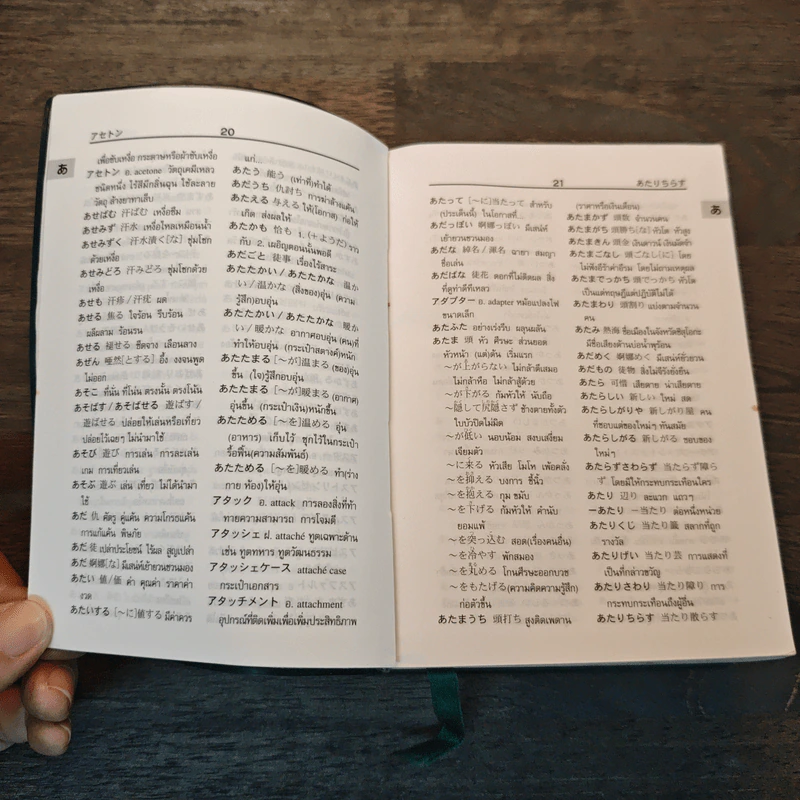 アセトン 20
あ
เพื่อซับเหงื่อ กระดาษหรือผ้าซับเหงื่อ
アセトン อ. acetone วัตถุเคมีเหลว
ชนิดหนึ่ง ไร้สีมีกลิ่นฉุน ใช้ละลาย
วัตถุ ล้างยาทาเล็บ
あせばむ 汗ばむ เหงื่อซึม
あせみず 汗水 เหงื่อไหลเหมือนน้ำ
あせみずく 汗水漬く[な] ชุ่มโชก
ด้วยเหงื่อ
あせみどろ 汗みどろ ชุ่มโชกด้วย
เหงื่อ
あせも 汗疹/汗疣 ผด
あせる 焦る ใจร้อน รีบร้อน
ผลีผลาม ร้อนรน
あせる 褪せる ซีดจาง เลือนลาง
あぜん 唖然[とする] อึ้ง งงจนพูด
ไม่ออก
あそこ ที่นั่น ที่โน่น ตรงนั้น ตรงโน้น
あそばす/あそばせる 遊ばす/
遊ばせる ปล่อยให้เล่นหรือเที่ยว
ปล่อยไว้เฉยๆ ไม่นำมาใช้
あそび 遊び การเล่น การละเล่น
เกม การเที่ยวเล่น
あそぶ 遊ぶ เล่น เที่ยว ไม่ได้นำมา
ใช้
あだ 仇 ศัตรู คู่แค้น ความโกรธแค้น
การแก้แค้น พิษภัย
あだ 徒 เปล่าประโยชน์ ไร้ผล สูญเปล่า
あだ 婀娜[な] มีเสน่ห์เย้ายวนชวนมอง
あたい 値/価 ค่า คุณค่า ราคาค่า
งวด
あたいする [~に]値する มีค่าควร
แก่...
あたう 能う (เท่าที่)ทำได้
あだうち 仇討ち การฆ่าล้างแค้น
あたえる 与える ให้(โอกาส) ก่อให้
เกิด ส่งผลให้
あたかも 恰も 1. (+ようだ) ราว
กับ 2. เผอิญตอนนั้นพอดี
あだごと 徒事 เรื่องไร้สาระ
あたたかい/あたたかな 温か
い/温かな (สิ่งของ)อุ่น (ความ
รู้สึก)อบอุ่น
あたたかい/あたたかな 暖か
い/暖かな อากาศอบอุ่น (คน)ที่
ทำให้อบอุ่น (กระเป๋าสตางค์)หนัก
あたたまる [~が]温まる (ของ)อุ่น
ขึ้น (ใจ)รู้สึกอบอุ่น
あたたまる [~が]暖まる (อากาศ)
อุ่นขึ้น (กระเป๋าเงิน)หนักขึ้น
あたためる [~を]温める อุ่น
(อาหาร) เก็บไว้ ซุกไว้ในกระเป๋า
รื้อฟื้น(ความสัมพันธ์)
あたためる [~を]暖める ทำ(ร่าง
กาย ห้อง)ให้อุ่น
アタック อ. attack การลองสิ่งที่ท้า
ทายความสามารถ การโจมตี
アタッシェ ฝ. attaché ทูตเฉพาะด้าน
เช่น ทูตทหาร ทูตวัฒนธรรม
アタッシェケース attaché case
กระเป๋าเอกสาร
アタッチメント อ. attachment
อุปกรณ์ที่ติดเพิ่มเพื่อเพิ่มประสิทธิภาพ
21 あたりちらす
あ
あたって [~に]当たって สำหรับ
(ประเด็นนี้) ในโอกาสที่...
あだっぽい 婀娜っぽい มีเสน่ห์
เย้ายวนชวนมอง
あだな 綽名/渾名 ฉายา สมญา
ชื่อเล่น
あだばな 徒花 ดอกที่ไม่ติดผล สิ่ง
ที่ดูท่าดีทีเหลว
アダプター อ. adapter หม้อแปลงไฟ
ขนาดเล็ก
あたふた อย่างเร่งรีบ ผลุนผลัน
あたま 頭 หัว ศีรษะ ส่วนยอด
หัวหน้า (แต่)ต้น เริ่มแรก
~が上がらない ไม่กล้าตีเสมอ
ไม่กล้าหือ ไม่กล้าสู้ด้วย
~が下がる ก้มหัวให้ นับถือ
~隠して尻隠さず ช้างตายทั้งตัว
ใบบัวปิดไม่มิด
~が低い นอบน้อม สงบเสงี่ยม
เจียมตัว
~に来る หัวเสีย โมโห เพ้อคลั่ง
~を抑える บงการ ชี้นิ้ว
~を抱える กุม ขมับ
~を下げる ก้มหัวให้ คำนับ
ยอมแพ้
~を突っ込む สอด(เรื่องคนอื่น)
~を冷やす พักสมอง
~を丸める โกนศีรษะออกบวช
~をもたげる(ความคิดความรู้สึก)
ก่อตัวขึ้น
あたまうち 頭打ち สูงติดเพดาน
(ราคาหรือเงินเดือน)
あたまかず 頭数 จำนวนคน
あたまがち 頭勝ち[な] หัวโต หัวสูง
あたまきん 頭金 เงินดาวน์ เงินมัดจำ
あたまごなし 頭ごなし[に] โดย
ไม่ฟังอีร้าค่าอีรม โดยไม่ถามเหตุผล
あたまでっかち 頭でっかち หัวโต
เป็นแต่ทฤษฎีแต่ปฏิบัติไม่ได้
あたまわり 頭割り แบ่งตามจำนวน
คน
あたみ 熱海 ชื่อเมืองในจังหวัดชิซุโอกะ
มีชื่อเสียงด้านบ่อน้ำพุร้อน
あだめく 婀娜めく มีเสน่ห์ยั่วยวน
あだもの 徒物 สิ่งไม่จีรังยั่งยืน
あたら 可惜 เสียดาย น่าเสียดาย
あたらしい 新しい ใหม่ สด
あたらしがりや 新しがり屋 คน
ที่ชอบแต่ของใหม่ๆ ทันสมัย
あたらしがる 新しがる ชอบของ
ใหม่ๆ
あたらずさわらず 当たらず障ら
ず โดยมิให้กระทบกระเทือนใคร
あたり 辺り ละแวก แถวๆ
ーあたり ー当たり ต่อหนึ่งหน่วย
あたりくじ 当たり籤 สลากที่ถูก
รางวัล
あたりげい 当たり芸 การแสดงที่
เป็นที่กล่าวขวัญ
あたりさわり 当たり障り การ
กระทบกระเทือนถึงผู้อื่น
あたりちらす 当たり散らす